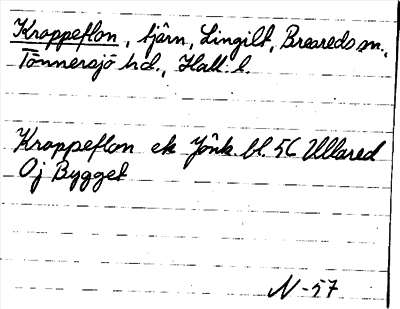 Kroppeflon, tjärn, Lingilt, Breareds sn.,
Tönnersjö hd., Hall. l.
Kroppeflon ek Jönk. bl. 5C Ullared
Oj Bygget
N-57